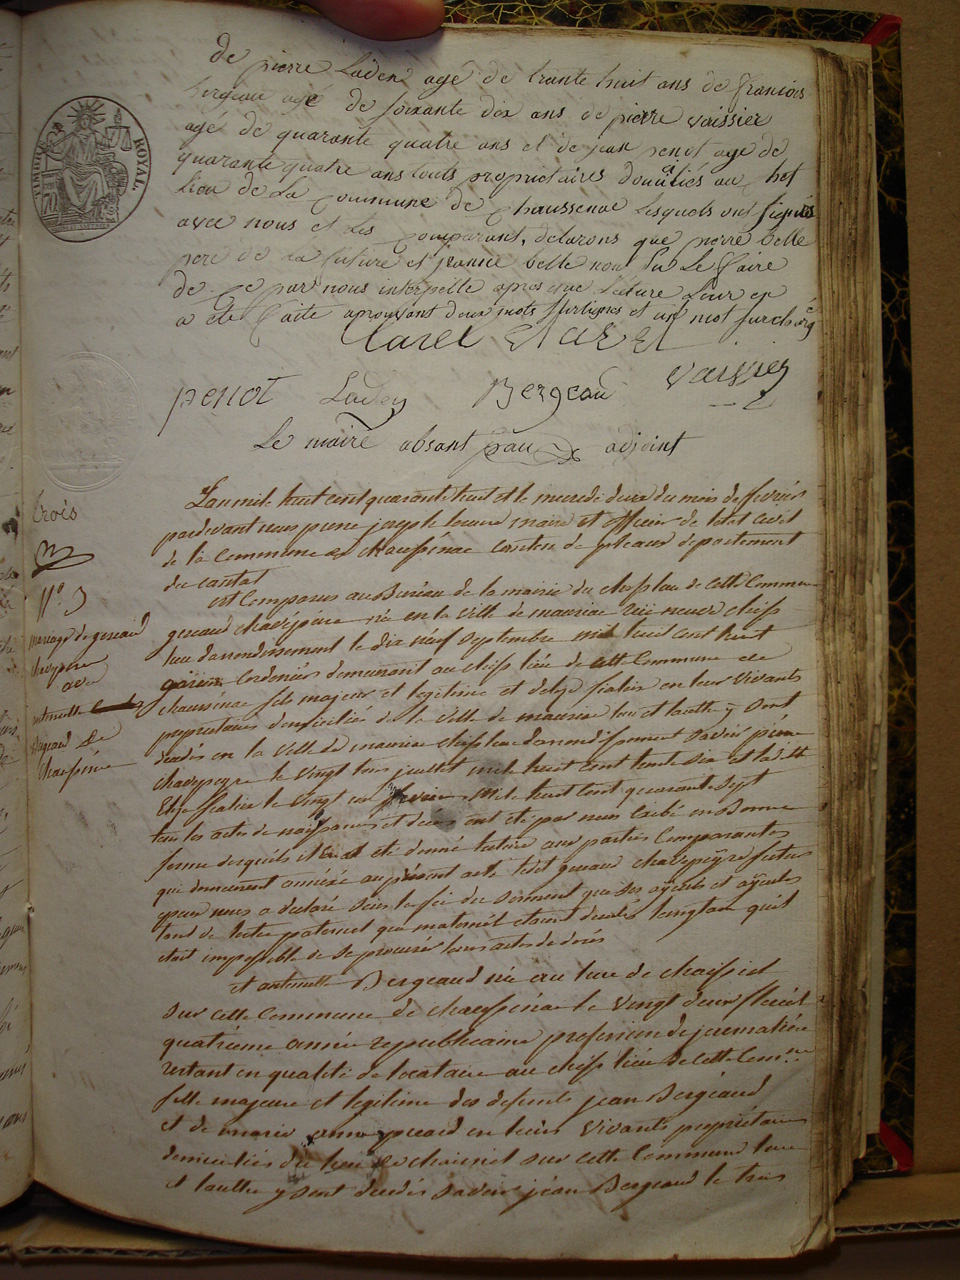 de pierre Laden agé de trante huit ans de francois
bergeau agé de soixante dex ans de pierre vaissier
agé de quarante quatre ans et de jean penot agé de
quarante quatre ans touts propriétaires domiciliés au chef
Lieu de La Commune de Chaussenac Lesquels ont signés
avec nous et Les Comparant, delarons que pierre belle
pere de La future et jeanne belle non su Le faire
de Ce par nous interpelle apres que Lecture Leur en
a été faite aprouvant deux mots surlignes et un mot surchargé
TIMBRE ROYAL
Clarel
penot Laden Bergeau Vaissier
Le maire absant adjoint
trois
L'an mil huit cent quarante huit et le mercredi deux du mois de fevrier
pardevant nous pierre joseph maire et officier de letat civil
de la Commune de Chaussenac canton de pleaux departement
du cantal
N° 3
mariage de geraud
chavepeyre
avec
antoinette
Bergeaud de
Chaussenac
est Comparu au Bureau de la mairie du chef lieu de cette Commune
geraud chavepeyre né en la ville de mauriac chef
lieu d'arrondissement le dix neuf septembre mil huit cent huit
Cordonier demeurant au chef lieu de cette Commune de
chaussenac fils majeur et legitime et d'elize fialix en leur vivants
propriétaires domiciliés de la ville de mauriac lun et lautre y sont
décédés en la ville de mauriac chef lieu darrondissement savoir pierre
chavepeyre le vingt trois juillet mil huit cent trente six et la dt
Elize fialix le vingt un fevrier mil huit cent quarante sept
tous les actes de naissances et deces ont eté par nous en Bonne
forme desquels il a eté donné lecture aux parties Comparantes
qui demeurent annexé au présent acte ledit geraud chavepeyre futur
epoux nous a declaré sous la foi du serment que ses ayeuls et ayeules
tant de leste paternel que maternel etaient decedés longtem quil
etait impossible de se procurer leurs actes de décés
et antoinette Bergeaud née au lieu de
sur cette Commune de chaussenac le vingt deux
quatrieme année republicaine profession de journalière
restant en qualité de locataire au chef lieu de cette Commune
fille majeure et legitime des defunts jean Bergeaud
et de marie anne picard en leurs vivants propriétaires
domiciliés du lieu de sur cette Commune lun
et lautre y sont decedés savoir jean Bergeaud le trois